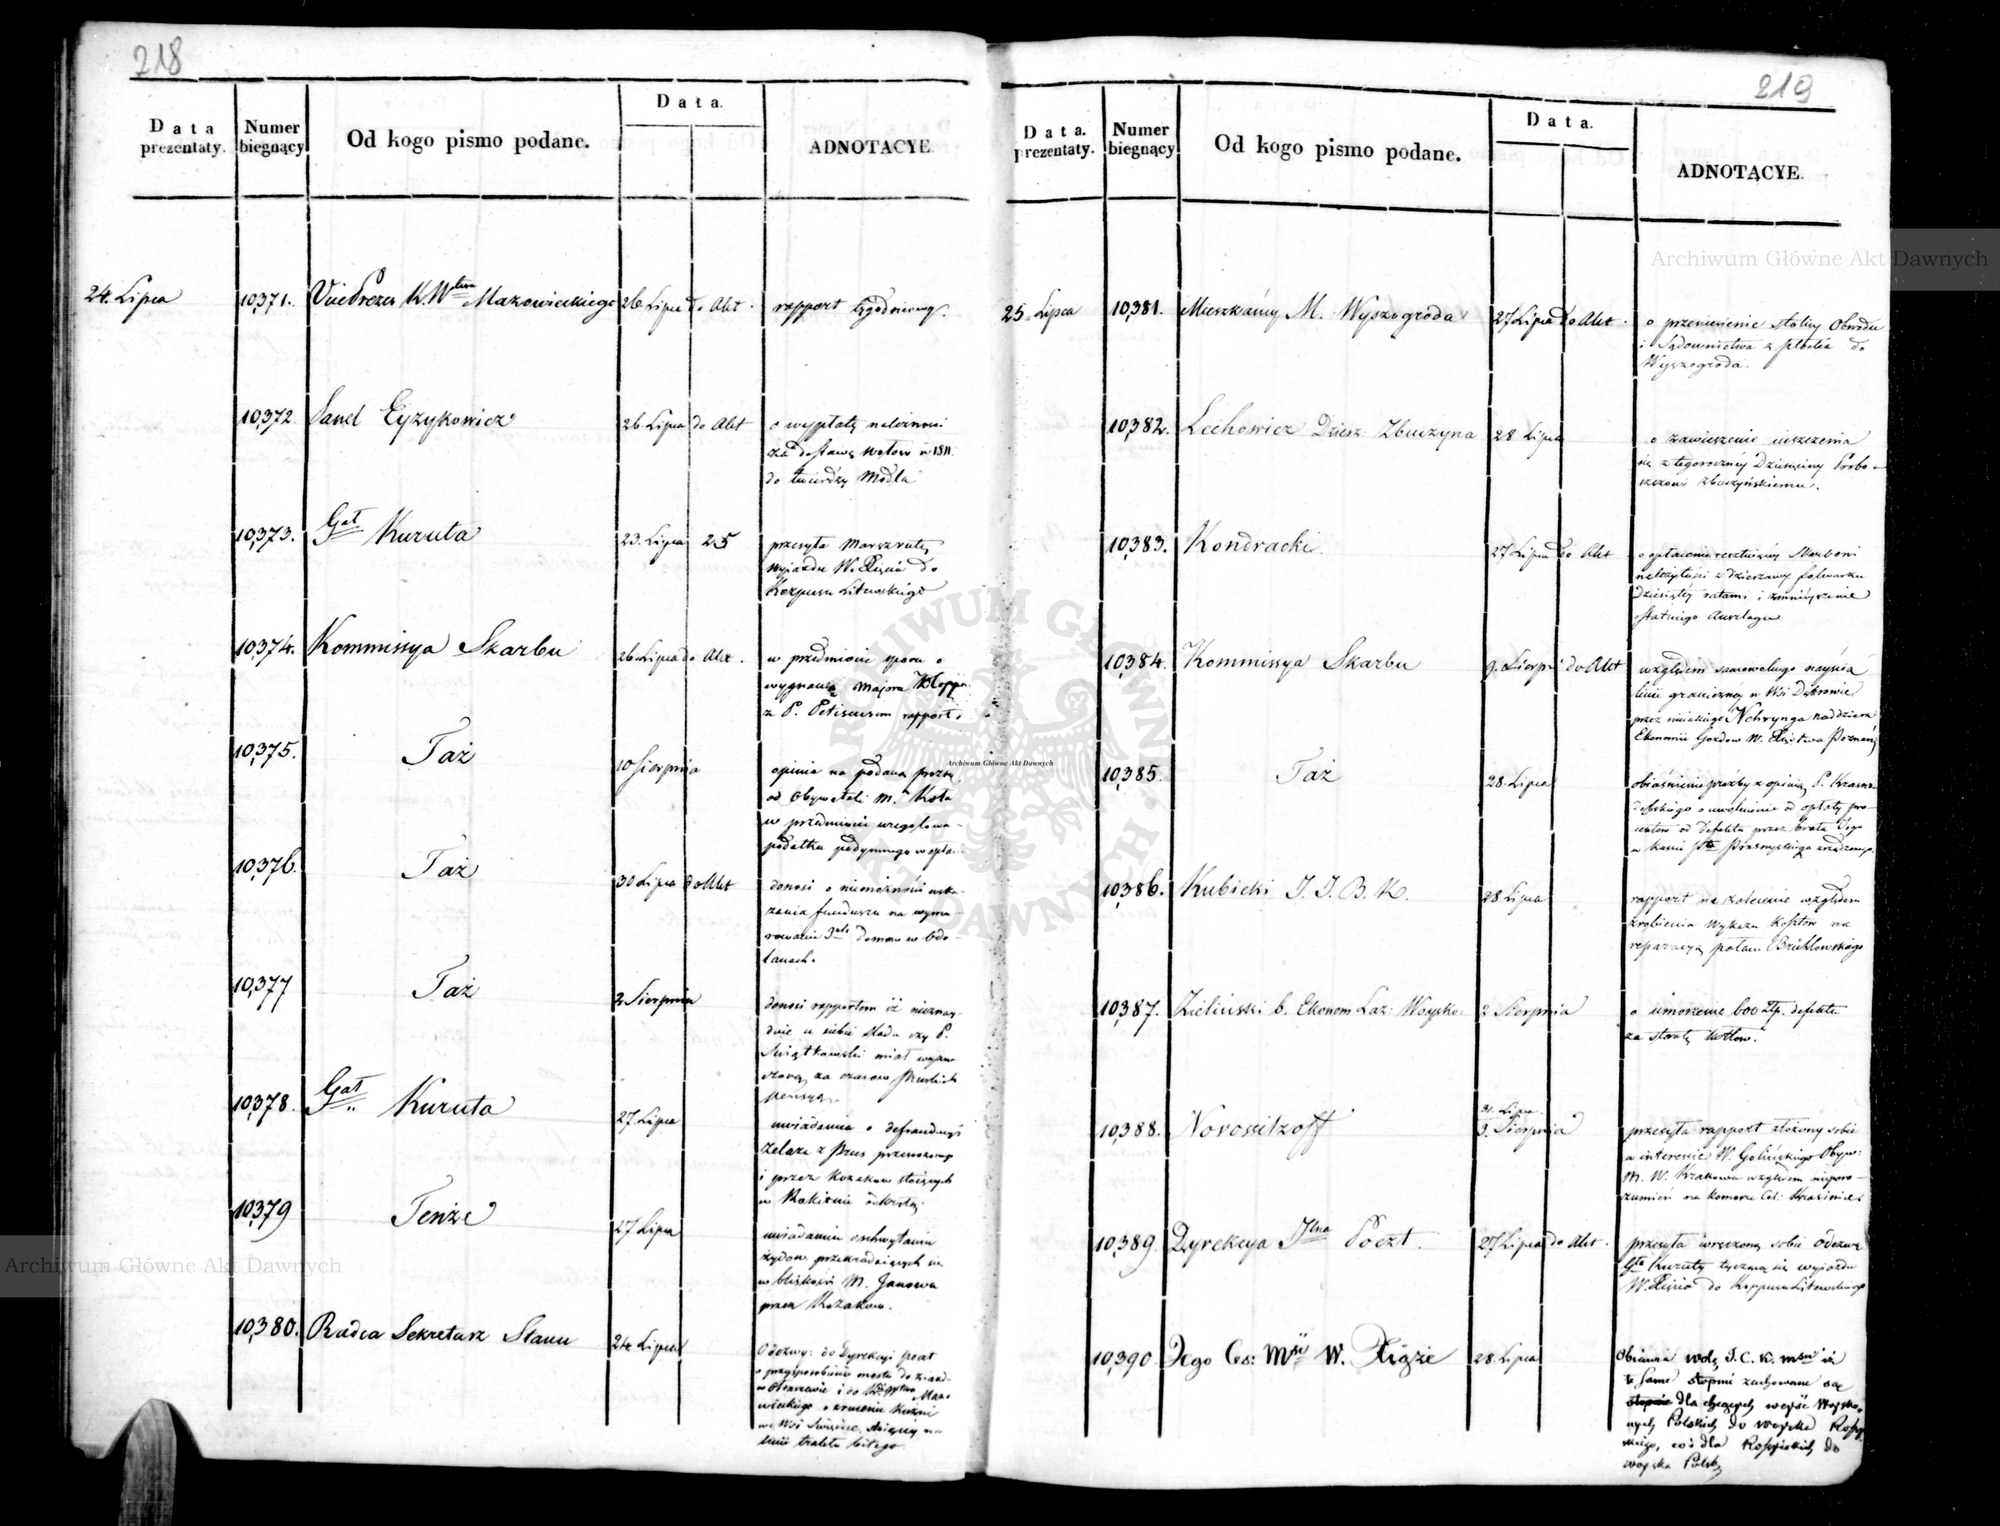 218
Data prezentaty.
Numer biegnący
Od kogo pismo podane.
Data.
ADNOTACYE.
24. Lipca
10,371.
VicePrezes K. Wztwa Mazowieckiego
26. Lipca do Akt.
rapport tygodniowy.
10,372.
Eyzykowicz
26. Lipca do Akt
o wypłatę należności
za dostawę wołow w 1811.
do twierdzy Modla
10,373.
Gał Kuruta
23. Lipca 25
przesyła Marszrutę
wyjazdu W. Xięcia do
Korpusu Litewskiego
10,374.
Kommissya Skarbu
26. Lipca do Akt.
w przedmiocie sporu o
Majora
z P. rapport.
10,375.
Taż
10 Sierpnia
opinia na podaną prozbę
od Obywateli M. Koła
w przedmiocie
podatku podymnego
10,376.
Taż
30 Lipca do Akt
donosi o niemożności wska-
zania funduszu na wymu-
rowanie domow w
10,377
Taż
2 Sierpnia
donosi rapportem iż nieznay-
duie u siebie sladu czy P.
Swiątkowski miał wyzna-
czoną za czasow Pruskich
pensyą.
10,378.
Gał Kuruta
27. Lipca
uwiadamia o
żelaza z Prus
i przez Kozakow stoiących
w
10,379
Tenże
27 Lipca
uwiadamia o schwytaniu
żydow przekradaiących się
w bliskości M. Janowa
przez Kozakow.
10,380.
Radca Sekretarz Stanu
24 Lipca
Odezwy: do Dyrekcyi poczt
o przysposobienie mostu do
w i do Mazo-
wieckiego o
we Wsi
traktu bitego.
219
Data. prezentaty.
Numer biegnący
Od kogo pismo podane.
Data.
ADNOTĄCYE.
25. Lipca
10,381.
Mieszkańcy M. Wyszogroda
27 Lipca do Akt.
o przeniesienie stolicy Obwodu
i Sądownictwa z Płocka do
Wyszogroda.
10,382.
Lechowicz Dzierż: Zbuczyna
28 Lipca
o zawieszenie uiszczenia
się z tegoroczney Dziesięciny Probo-
szczowi Zbuczyńskiemu.
10,383.
Kondracki
27 Lipca do Akt
o opłacenie Skarbowi
należytości z dzierżawy folwarku
ratami i zmnieyszenie
10,384.
Kommissya Skarbu
9. Sierp: do Akt
względem samowolnego
linii graniczney w Wsi Dąbrowie
przez nieiakiego Nehrynga
Ekonomii W. Xięstwa Poznań:
10,385.
Taż
28. Lipca
obiaśnienie proźby z opinią P. Krasno-
dębskiego o uwolnienie od opłaty pro-
centow od defektu przez brata Jego
w Kassie Przasnyskiego zrządzonego.
10,386.
Kubicki J. J. B. K.
28 Lipca
rapport na zalecenie względem
zrobienia wykazu kosztow na
reparacyą pałacu Brühlowskiego
10,387.
Zieliński b. Ekonom Laz: Woysko:
2 Sierpnia
o umorzenie 600 złp. defektu
za stratę kotłow.
10,388.
Novossiltzoff
31. Lipca
3. Sierpnia
przesyła rapport złożony sobie
w interesie W. Golińskiego Obyw:
M. W. Krakowa względem nieporo-
zumień na komorze Cel:
10,389.
Dyrekcya Jlna Poczt.
27 Lipca do Akt.
przesyła wręczoną sobie odezwę
Gła Kuruty tyczącą się wyjazdu
W. Xięcia do Korpusu Litewskiego
10,390.
Jego Ces: Mść W. Xiąże
28. Lipca
Obiawia wolę J. C. K. Mści iż
te same stopnie zachowane są
dla chcących wejść Woysko-
wych Polskich do woyska Rossyi-
skiego, co i dla Rossyiskich do
woyska Polsk:
Archiwum Główne Akt Dawnych
Archiwum Główne Akt Dawnych
Archiwum Główne Akt Dawnych
ARCHIWUM GŁÓWNE AKT DAWNYCH